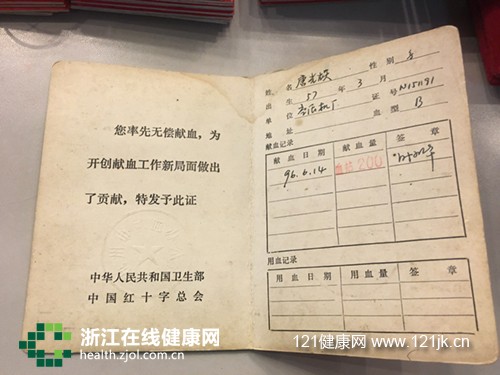 您率先无偿献血，为
开创献血工作新局面做出
了贡献，特发予此证
中华人民共和国卫生部
中国红十字总会
姓 名 唐光 性 别
出 生 57 年 3 月
单 位 机厂 证 号 N15191
地 址 血 型 B
献血记录
献 血 日 期 献 血 量 签 章
96.6.14 200
用血记录
用 血 日 期 用 血 量 签 章
浙江在线健康网
health.zjol.com.cn
121健康网 www.121jk.cn